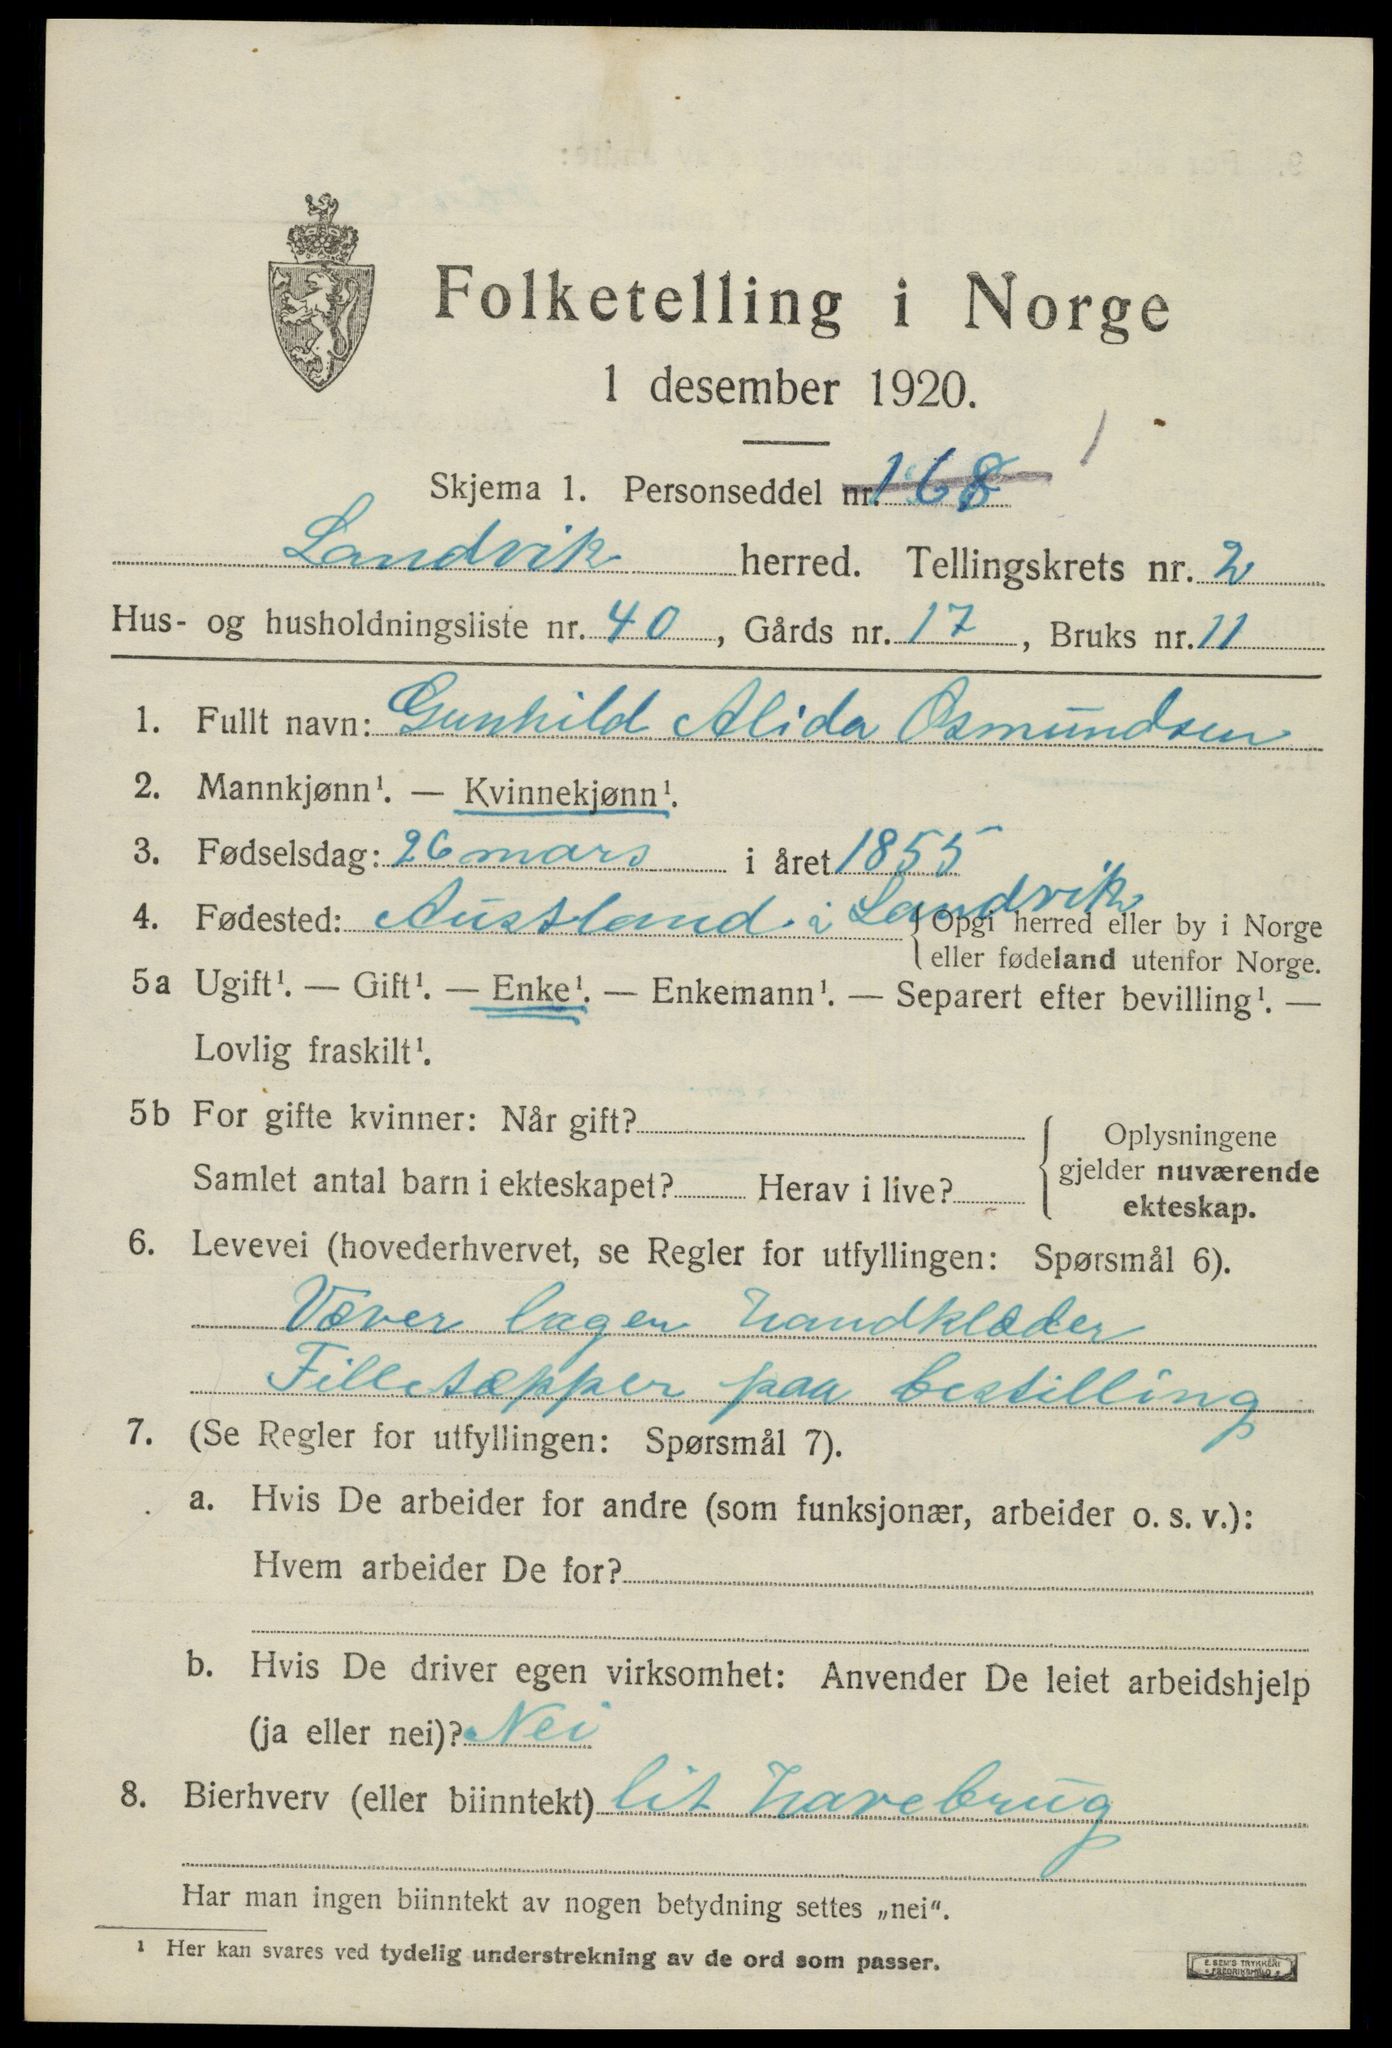 Folketelling i Norge
1 desember 1920.
Skjema 1. Personseddel nr. 168 1
Landvik herred. Tellingskrets nr. 2
Hus- og husholdningsliste nr. 40, Gårds nr. 17, Bruks nr. 11
1. Fullt navn: Gunhild Alida Osmundsen
2. Mannkjønn¹. — Kvinnekjønn¹.
3. Fødselsdag: 26 mars i året 1855
4. Fødested: Austland i Landvik { Opgi herred eller by i Norge
eller fødeland utenfor Norge.
5a Ugift¹. — Gift¹. — Enke¹. — Enkemann¹. — Separert efter bevilling¹. —
Lovlig fraskilt¹.
5b For gifte kvinner: Når gift?
Samlet antal barn i ekteskapet? Herav i live?
Oplysningene
gjelder nuværende
ekteskap.
6. Levevei (hovederhvervet, se Regler for utfyllingen: Spørsmål 6).
Væver lagen handklæder
Filletæpper paa bestilling
7. (Se Regler for utfyllingen: Spørsmål 7).
a. Hvis De arbeider for andre (som funksjonær, arbeider o. s. v.):
Hvem arbeider De for?
b. Hvis De driver egen virksomhet: Anvender De leiet arbeidshjelp
(ja eller nei)? Nei
8. Bierhverv (eller biinntekt) lit havebrug
Har man ingen biinntekt av nogen betydning settes „nei“.
¹ Her kan svares ved tydelig understrekning av de ord som passer.
E. SEM'S TRYKKERI
FREDRIKSHALD